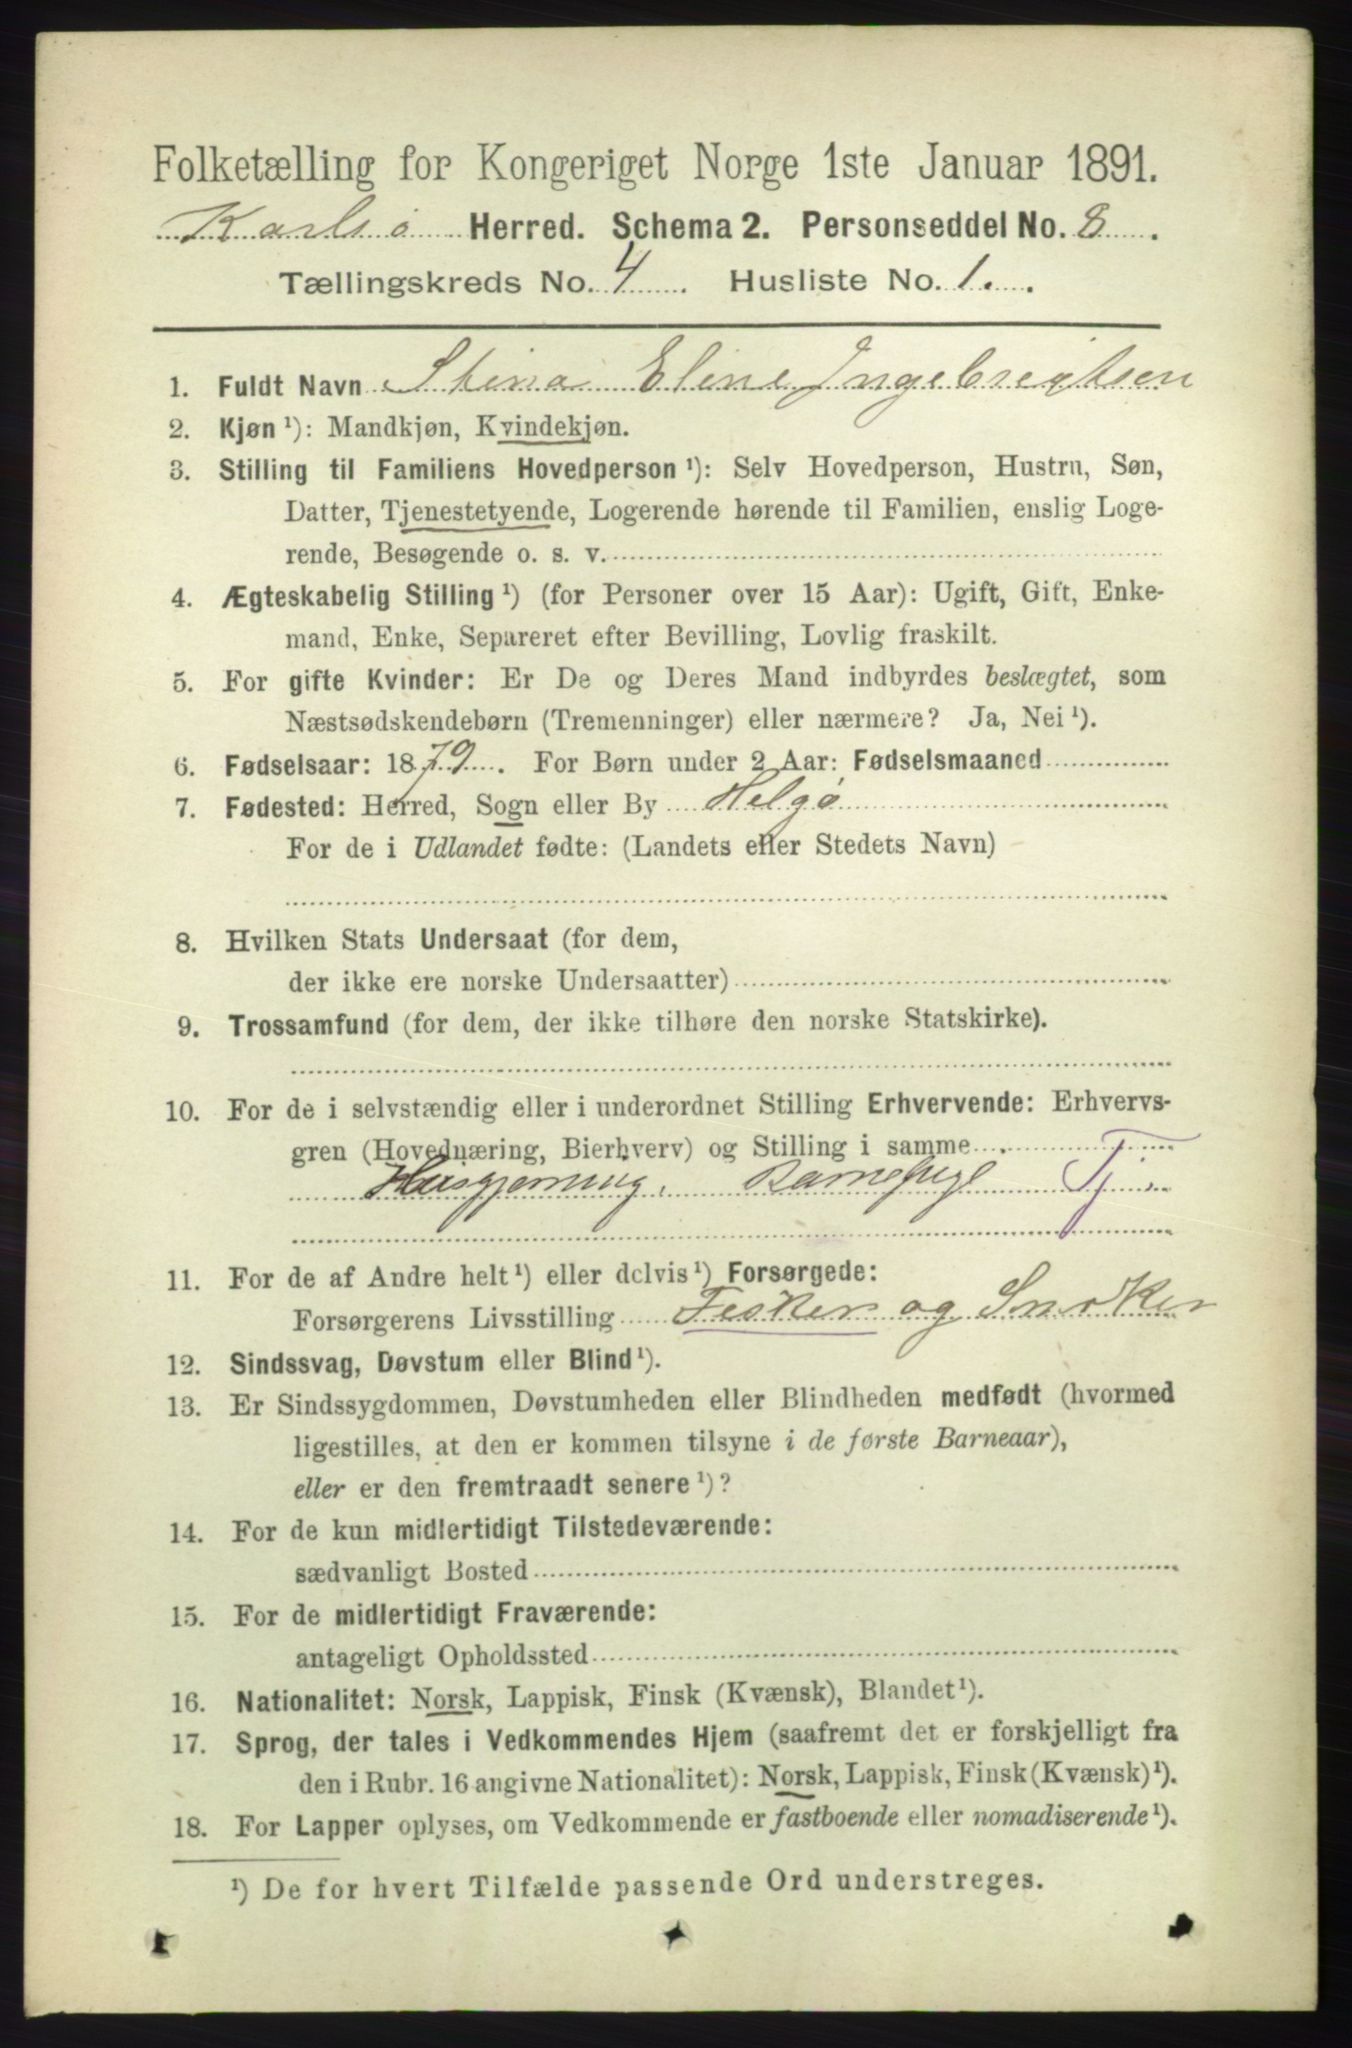 Folketælling for Kongeriget Norge 1ste Januar 1891.
Karlsø Herred. Schema 2. Personseddel No. 8.
Tællingskreds No. 4. Husliste No. 1.
1. Fuldt Navn Stina Eline Ingebrigtsen
2. Kjøn ¹): Mandkjøn, Kvindekjøn.
3. Stilling til Familiens Hovedperson ¹): Selv Hovedperson, Hustru, Søn,
Datter, Tjenestetyende, Logerende hørende til Familien, enslig Loge-
rende, Besøgende o. s. v.
4. Ægteskabelig Stilling ¹) (for Personer over 15 Aar): Ugift, Gift, Enke-
mand, Enke, Separeret efter Bevilling, Lovlig fraskilt.
5. For gifte Kvinder: Er De og Deres Mand indbyrdes beslægtet, som
Næstsødskendebørn (Tremenninger) eller nærmere? Ja, Nei ¹).
6. Fødselsaar: 1879. For Børn under 2 Aar: Fødselsmaaned
7. Fødested: Herred, Sogn eller By Helgø
For de i Udlandet fødte: (Landets eller Stedets Navn)
8. Hvilken Stats Undersaat (for dem,
der ikke ere norske Undersaatter)
9. Trossamfund (for dem, der ikke tilhøre den norske Statskirke).
10. For de i selvstændig eller i underordnet Stilling Erhvervende: Erhvervs-
gren (Hovednæring, Bierhverv) og Stilling i samme
Husgjerning. Barnepige Tj.
11. For de af Andre helt ¹) eller delvis ¹) Forsørgede:
Forsørgerens Livsstilling Fesker og Snøker
12. Sindssvag, Døvstum eller Blind ¹).
13. Er Sindssygdommen, Døvstumheden eller Blindheden medfødt (hvormed
ligestilles, at den er kommen tilsyne i de første Barneaar),
eller er den fremtraadt senere ¹)?
14. For de kun midlertidigt Tilstedeværende:
sædvanligt Bosted
15. For de midlertidigt Fraværende:
antageligt Opholdssted
16. Nationalitet: Norsk, Lappisk, Finsk (Kvænsk), Blandet ¹).
17. Sprog, der tales i Vedkommendes Hjem (saafremt det er forskjelligt fra
den i Rubr. 16 angivne Nationalitet): Norsk, Lappisk, Finsk (Kvænsk) ¹).
18. For Lapper oplyses, om Vedkommende er fastboende eller nomadiserende ¹).
¹) De for hvert Tilfælde passende Ord understreges.